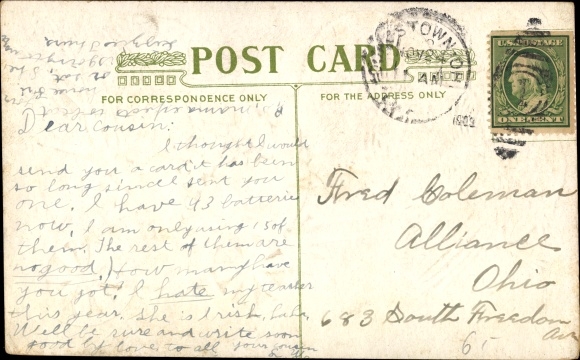 POST CARD
FOR CORRESPONDENCE ONLY
FOR THE ADDRESS ONLY
U.S. POSTAGE
ONE CENT
Dear Cousin:
I thought I would
send you a card it has been
so long since I sent you
one. I have 93 batteries
now. I am only using 15 of
them. The rest of them are
no good.) How many have
you got? I hate my teacher
this year. She is Irish, Ha ha.
Well be sure and write soon
good by love to all your cousin
Fred Coleman
Alliance
Ohio
683 South Freedom
Ave
65